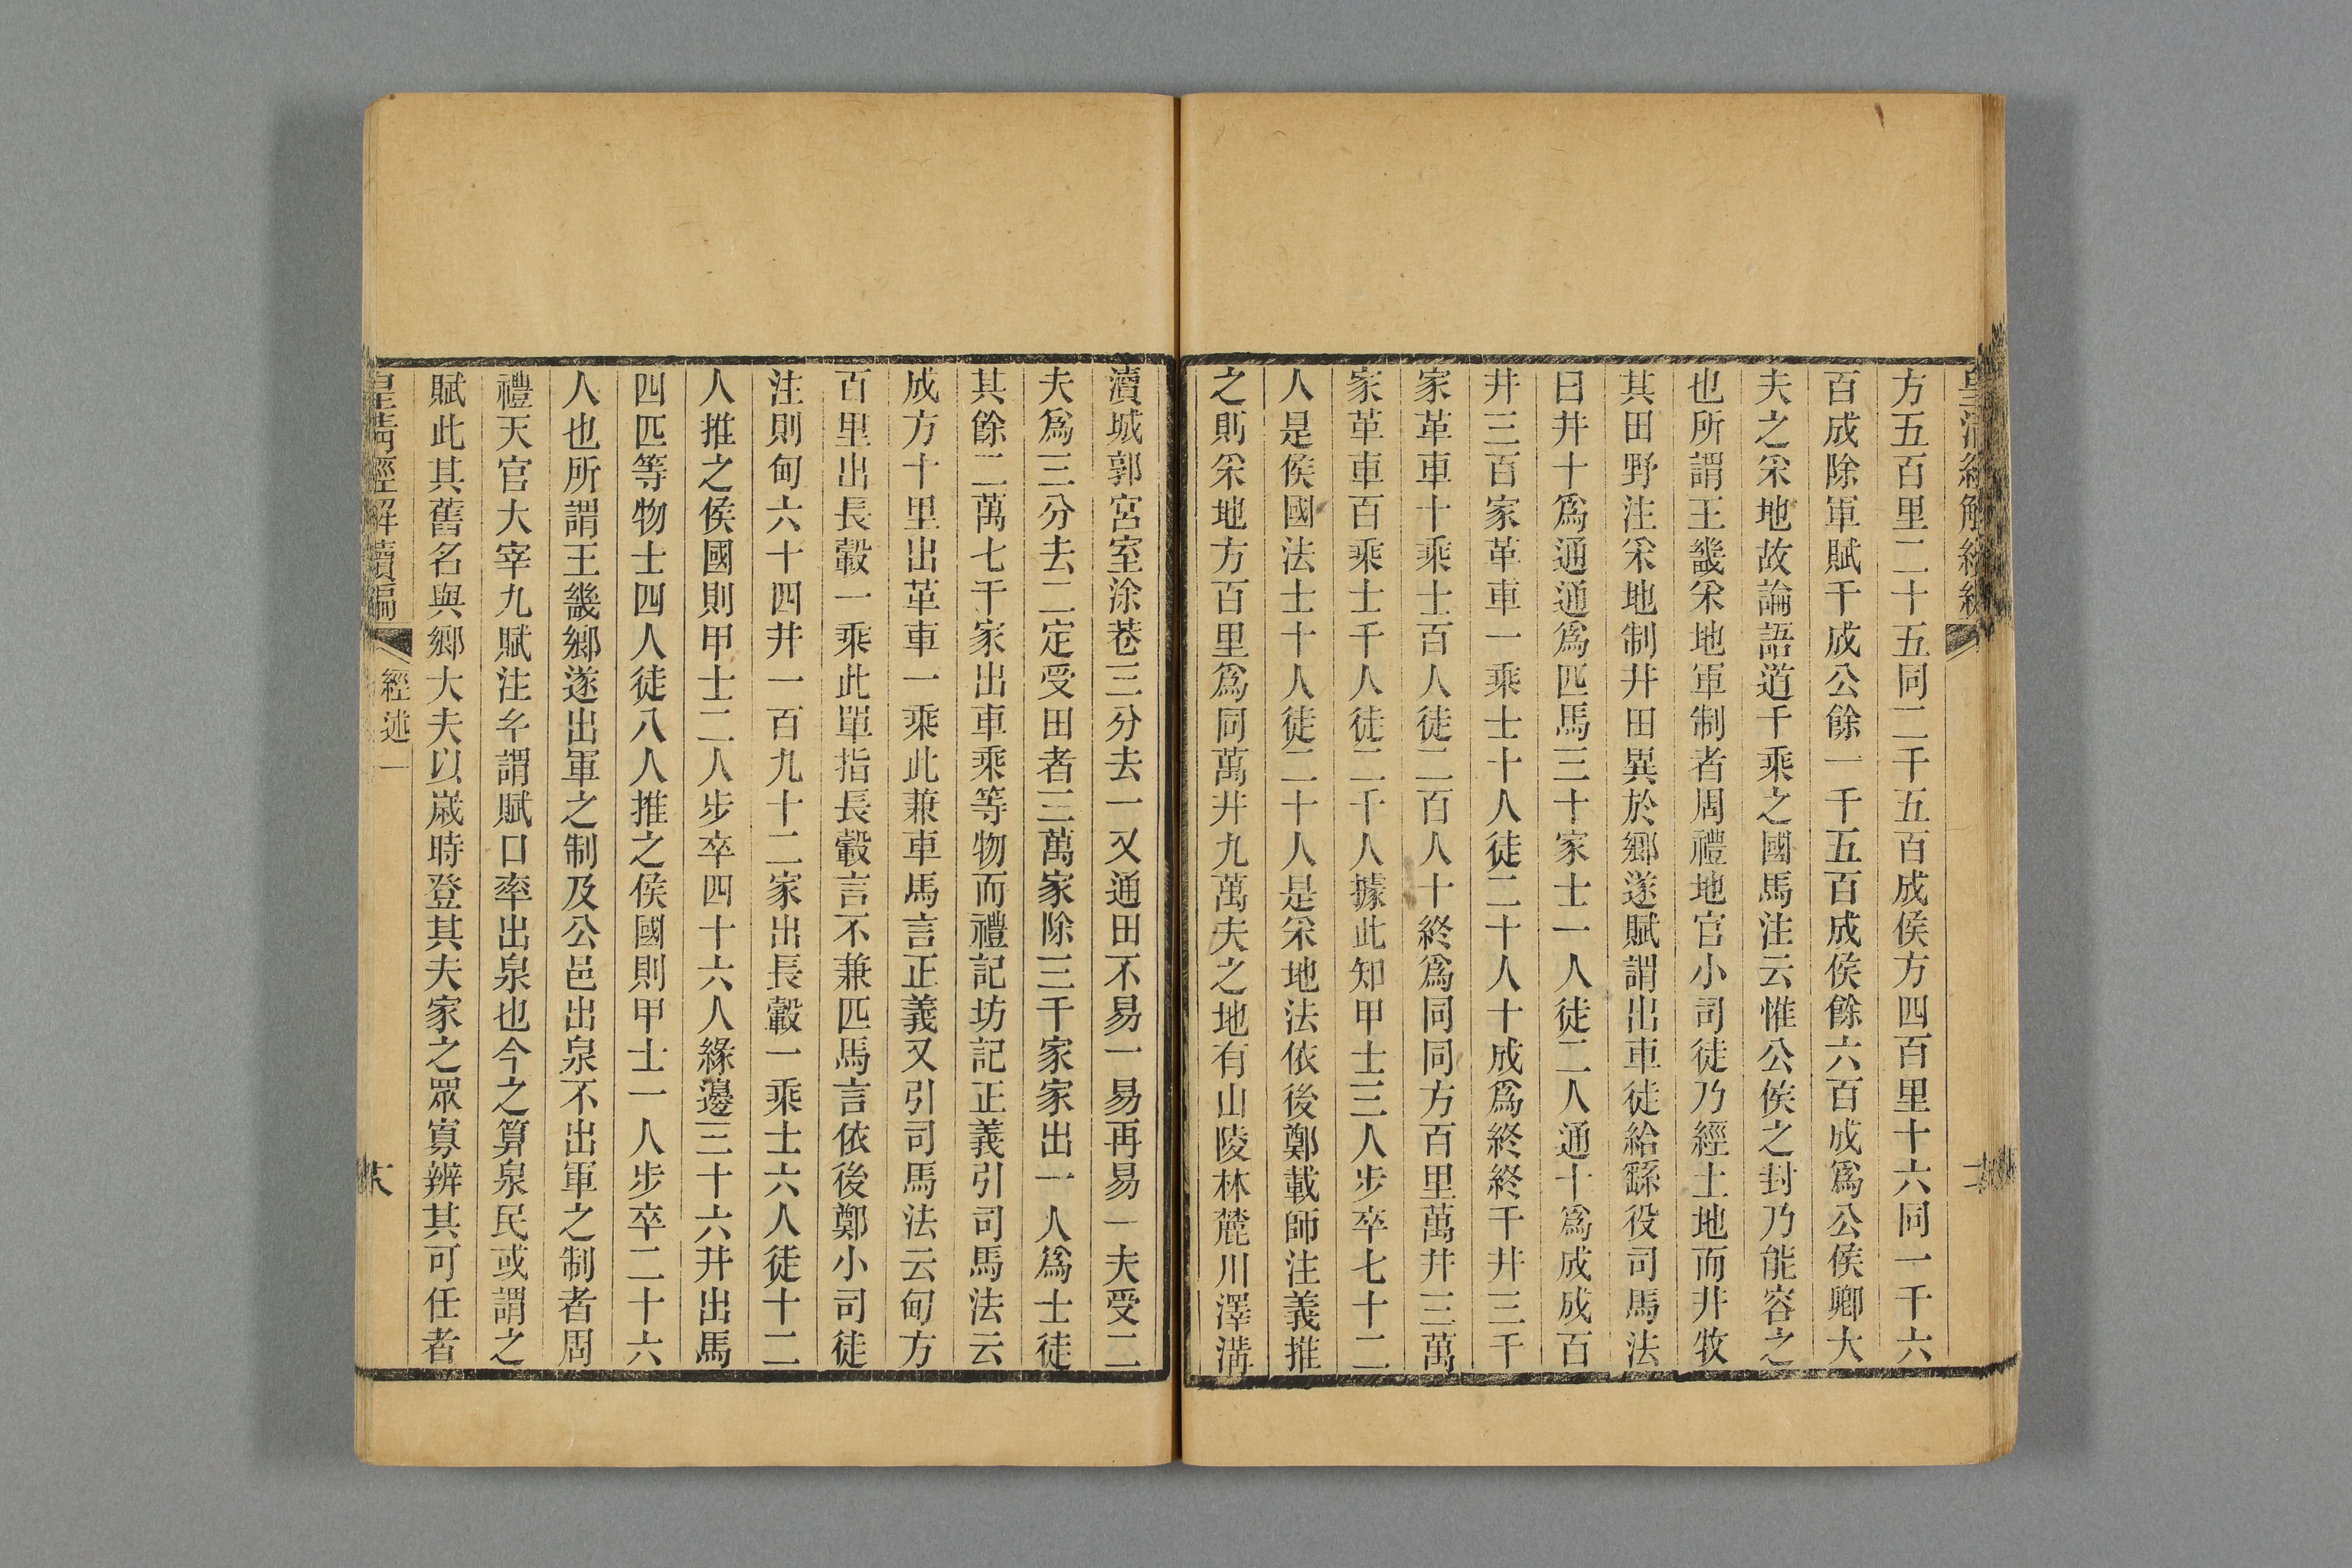 方五百里二十五同二千五百成侯方四百里十六同一千六
百成除軍賦千成公餘一千五百成侯餘六百成爲公侯卿大
夫之采地故論語道千乘之國馬注云惟公侯之封乃能容之
也所謂王畿采地軍制者周禮地官小司徒乃經土地而井牧
其田野注采地制井田異於鄉遂賦謂出車徒給繇役司馬法
曰井十爲通通爲匹馬三十家士一人徒二人通十爲成成百
井三百家革車一乘士十人徒二十人十成爲終終千井三千
家革車十乘士百人徒二百人十終爲同同方百里萬井三萬
家革車百乘士千人徒二千人據此知甲士三人步卒七十二
人是侯國法士十人徒二十人是采地法依後鄭載師注義推
之則采地方百里爲同萬井九萬夫之地有山陵林麓川澤溝
瀆城郭宮室涂巷三分去一又通田不易一易再易一夫受二
夫爲三分去二定受田者三萬家除三千家家出一人爲士徒
其餘二萬七千家出車乘等物而禮記坊記正義引司馬法云
成方十里出革車一乘此兼車馬言正義又引司馬法云甸方
百里出長轂一乘此單指長轂言不兼匹馬言依後鄭小司徒
注則甸六十四井一百九十二家出長轂一乘士六人徒十二
人推之侯國則甲士二人步卒四十六人緣邊三十六井出馬
四匹等物士四人徒八人推之侯國則甲士一人步卒二十六
人也所謂王畿鄉遂出軍之制及公邑出泉不出軍之制者周
禮天官大宰九賦注玄謂賦口率出泉也今之算泉民或謂之
賦此其舊名與鄉大夫以歲時登其夫家之眾寡辨其可任者
皇清經解續編
經述一